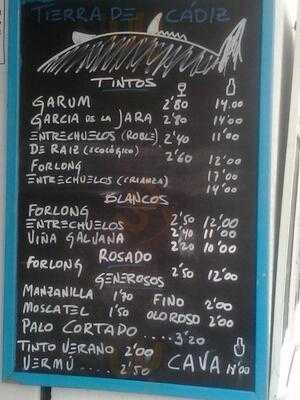 TIERRA DE CÁDIZ
TINTOS
GARUM 2'80 14.00
GARCIA DE LA JARA 2'80 14'00
ENTRECHUELOS (ROBLE) 2'40 11'00
DE RAIZ (ECOLÓGICO) 2'60 12'00
FORLONG 17'00
ENTRECHUELOS (CRIANZA) 14'00
BLANCOS
FORLONG 2'50 12'00
ENTRECHUELOS 2'40 11'00
VIÑA GALVANA 2'20 10'00
ROSADO
FORLONG 2'50 12'00
GENEROSOS
MANZANILLA 1'70 FINO 2'00
MOSCATEL 1'50 OLOROSO 2'00
PALO CORTADO ..... 3'20
TINTO VERANO 2'00
VERMÚ ..... 2'50 CAVA 18'00